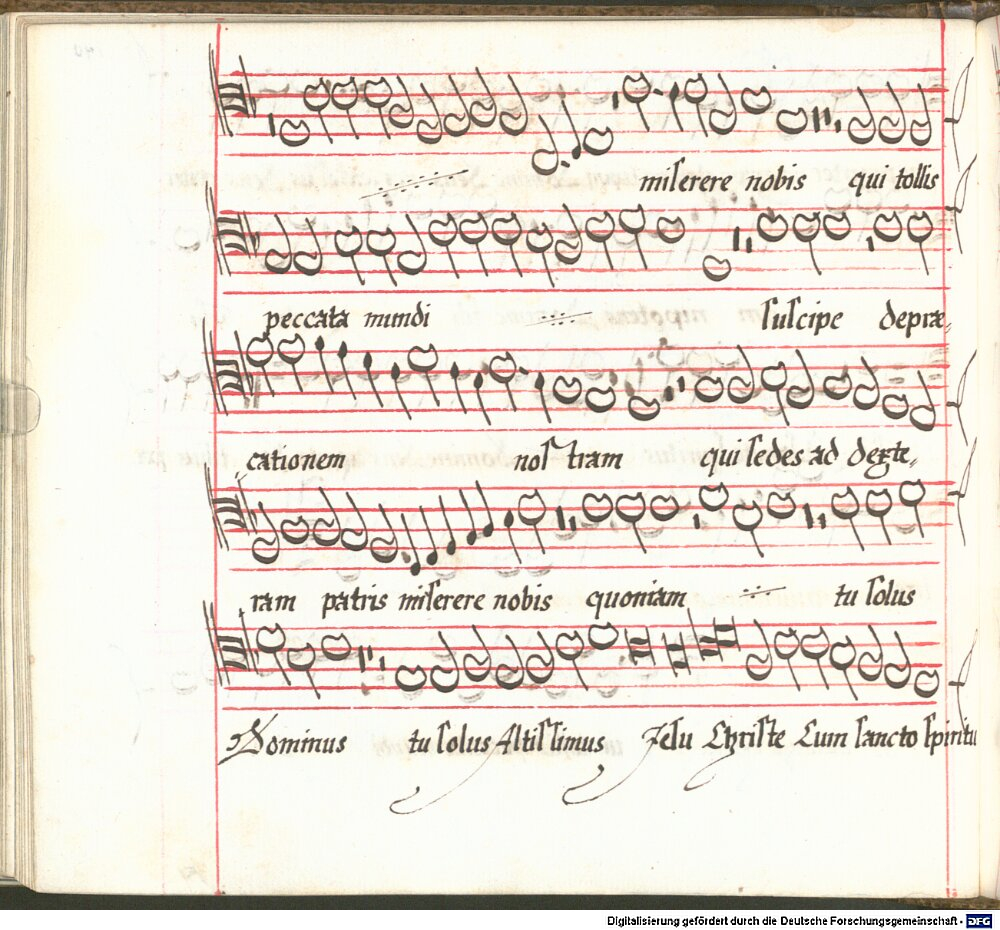 miserere nobis qui tollis
peccata mundi suscipe depræ,
cationem nostram qui sedes ad dexte,
ram patris miserere nobis quoniam tu solus
Dominus tu solus Altissimus Jesu Christe Cum sancto spiritu
Digitalisierung gefördert durch die Deutsche Forschungsgemeinschaft - DFG